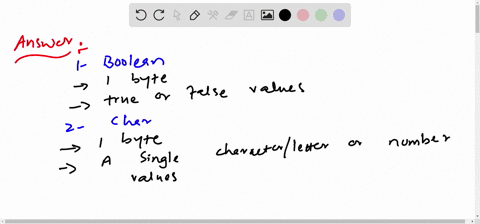 Answer :-
1- Boolean
→ 1 byte
→ true or False values
2- Char
→ 1 byte
→ A Single character/letter or number
values